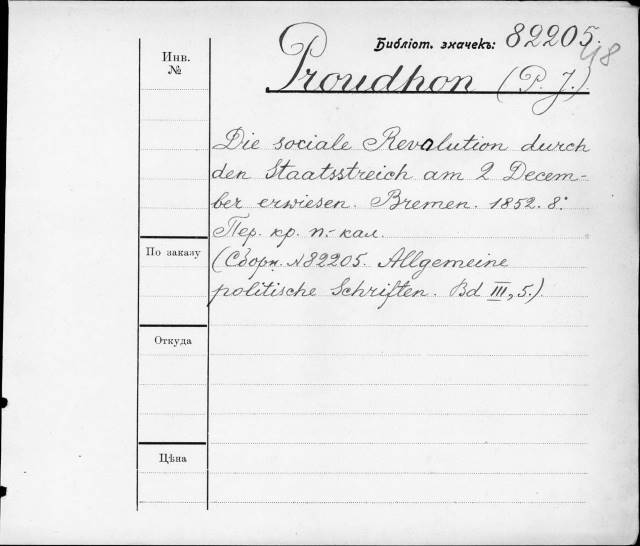 Библіот. значекъ: 82205.
48
Инв.
№
Proudhon (P. J.)
Die sociale Revolution durch
den Staatsstreich am 2 Decem-
ber erwiesen. Bremen. 1852. 8°.
Пер. кр. п.-кал.
По заказу
(Сборн. №82205. Allgemeine
politische Schriften. Bd III, 5.)
Откуда
Цѣна